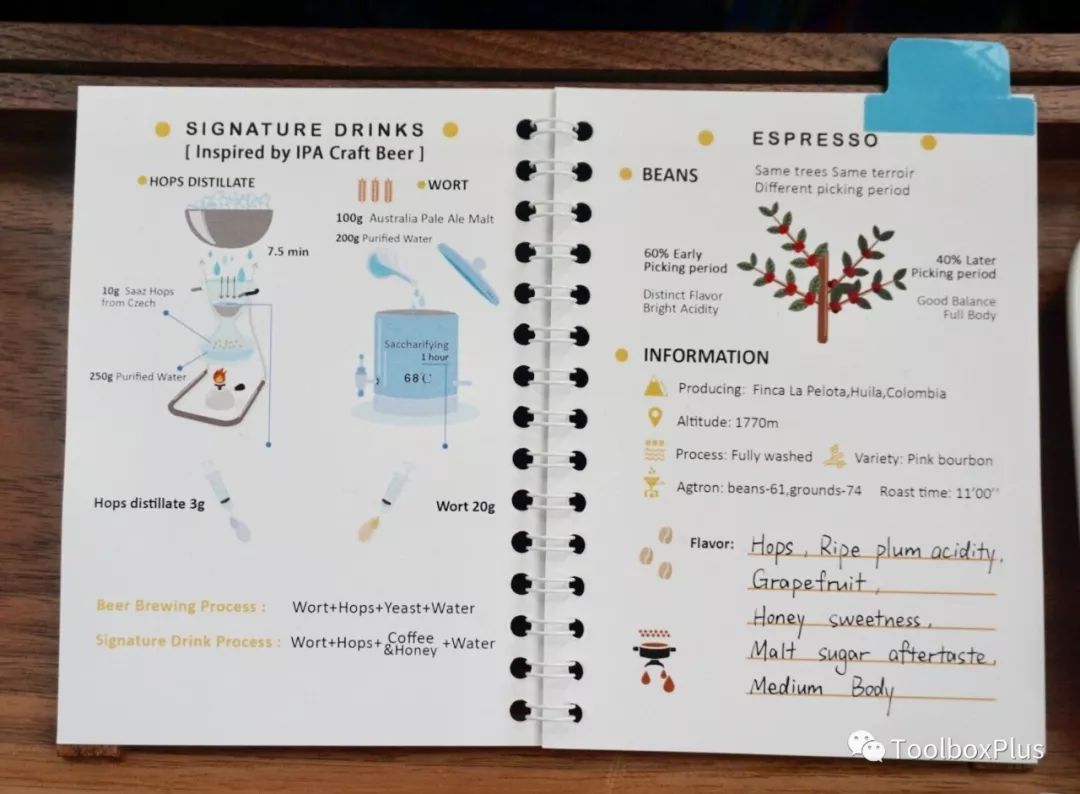 SIGNATURE DRINKS
[ Inspired by IPA Craft Beer ]
HOPS DISTILLATE
7.5 min
10g Saaz Hops
from Czech
250g Purified Water
Hops distillate 3g
WORT
100g Australia Pale Ale Malt
200g Purified Water
Saccharifying
1 hour
68℃
Wort 20g
Beer Brewing Process : Wort+Hops+Yeast+Water
Signature Drink Process : Wort+Hops+ Coffee &Honey +Water
ESPRESSO
BEANS
Same trees Same terroir
Different picking period
60% Early
Picking period
Distinct Flavor
Bright Acidity
40% Later
Picking period
Good Balance
Full Body
INFORMATION
Producing: Finca La Pelota,Huila,Colombia
Altitude: 1770m
Process: Fully washed Variety: Pink bourbon
Agtron: beans-61,grounds-74 Roast time: 11'00''
Flavor: Hops, Ripe plum acidity,
Grapefruit,
Honey sweetness,
Malt sugar aftertaste,
Medium Body
ToolboxPlus